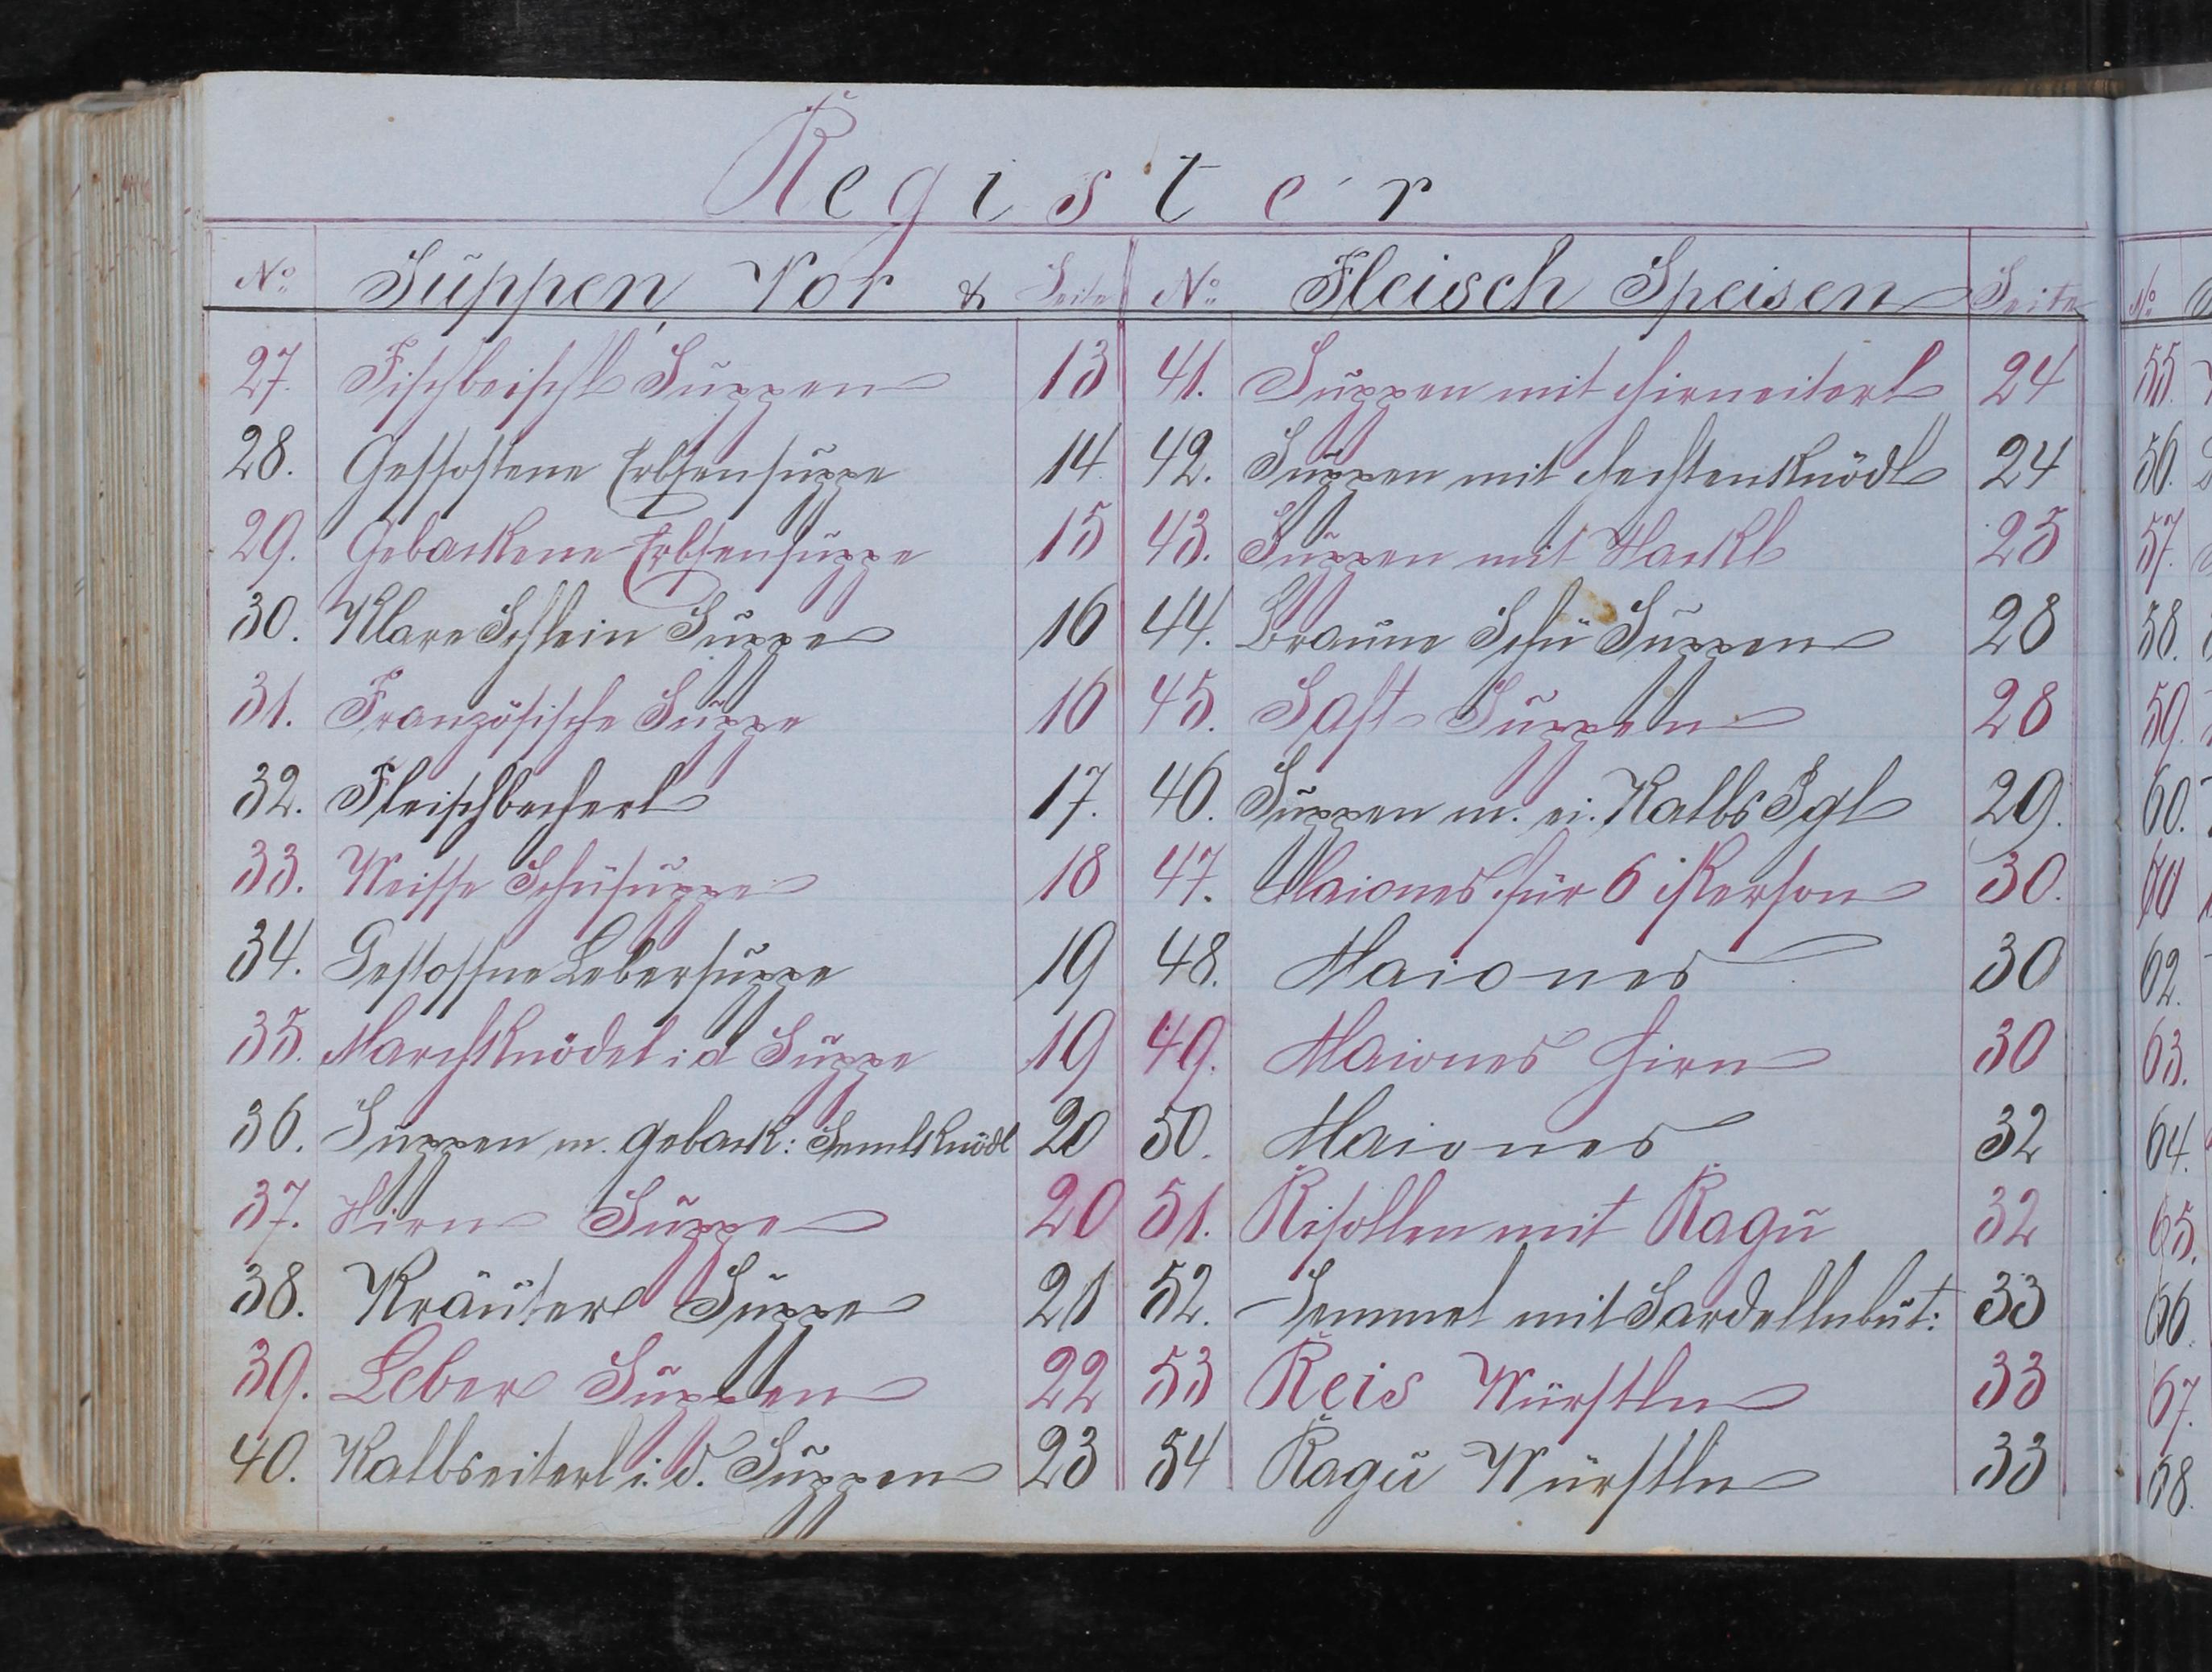 Register
No. Suppen, Vor & Seite No. Fleisch Speisen Seite
27. Fischbeischl Suppen 13
28. Gestostene Erbsensuppe 14
29. Gebackene Erbsensuppe 15
30. Klare Schlein Suppe 16
31. Französische Suppe 16
32. Fleischbecherl 17.
33. Weisse Schüsuppe 18
34. Gestossne Lebersuppe 19
35. Marchknödel i d Suppe 19
36. Suppen m. geback: Semlknödl 20
37. Hirn Suppe 20
38. Kräuter Suppe 21
39. Leber Suppen 22
40. Kalbseiterl i. d. Suppen 23
41. Suppen mit Hirneiterl 24
42. Suppen mit Hechtenknödl 24
43. Suppen mit Hackl 25
44. Braune Schü Suppen 28
45. Saft Suppen 28
46. Suppen m. ei. Kalbs 29.
47. Maiones für 6 Person 30.
48. Maiones 30
49. Maiones Hirn 30
50. Maiones 32
51. Risollen mit Ragu 32
52. Semmel mit Sardellnbut: 33
53 Reis Würstln 33
54 Ragu Würstln 33
No
55.
56.
57.
58.
59.
60.
62.
63.
64.
65.
66.
67.
68.